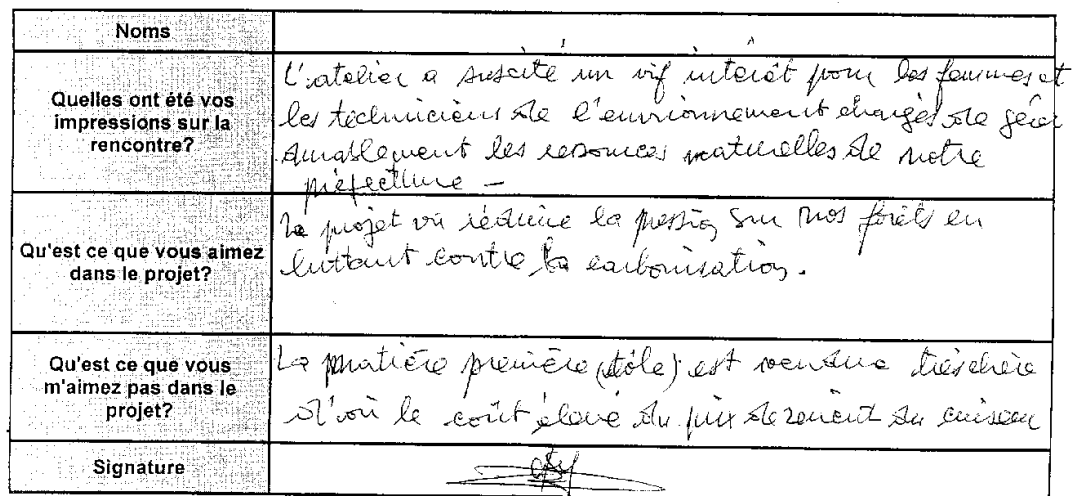 Noms
Quelles ont été vos
impressions sur la
rencontre?
L'atelier a suscité un vif intérêt pour les femmes et
les techniciens de l'environnement chargés de gérer
durablement les resources naturelles de notre
préfecture -
Qu'est ce que vous aimez
dans le projet?
Le projet va réduire la pression sur nos forêts en
luttant contre la carbonisation.
Qu'est ce que vous
m'aimez pas dans le
projet?
La matière première (tôle) est vendue très chère
d'où le coût élevé du prix de revient du cuiseur
Signature